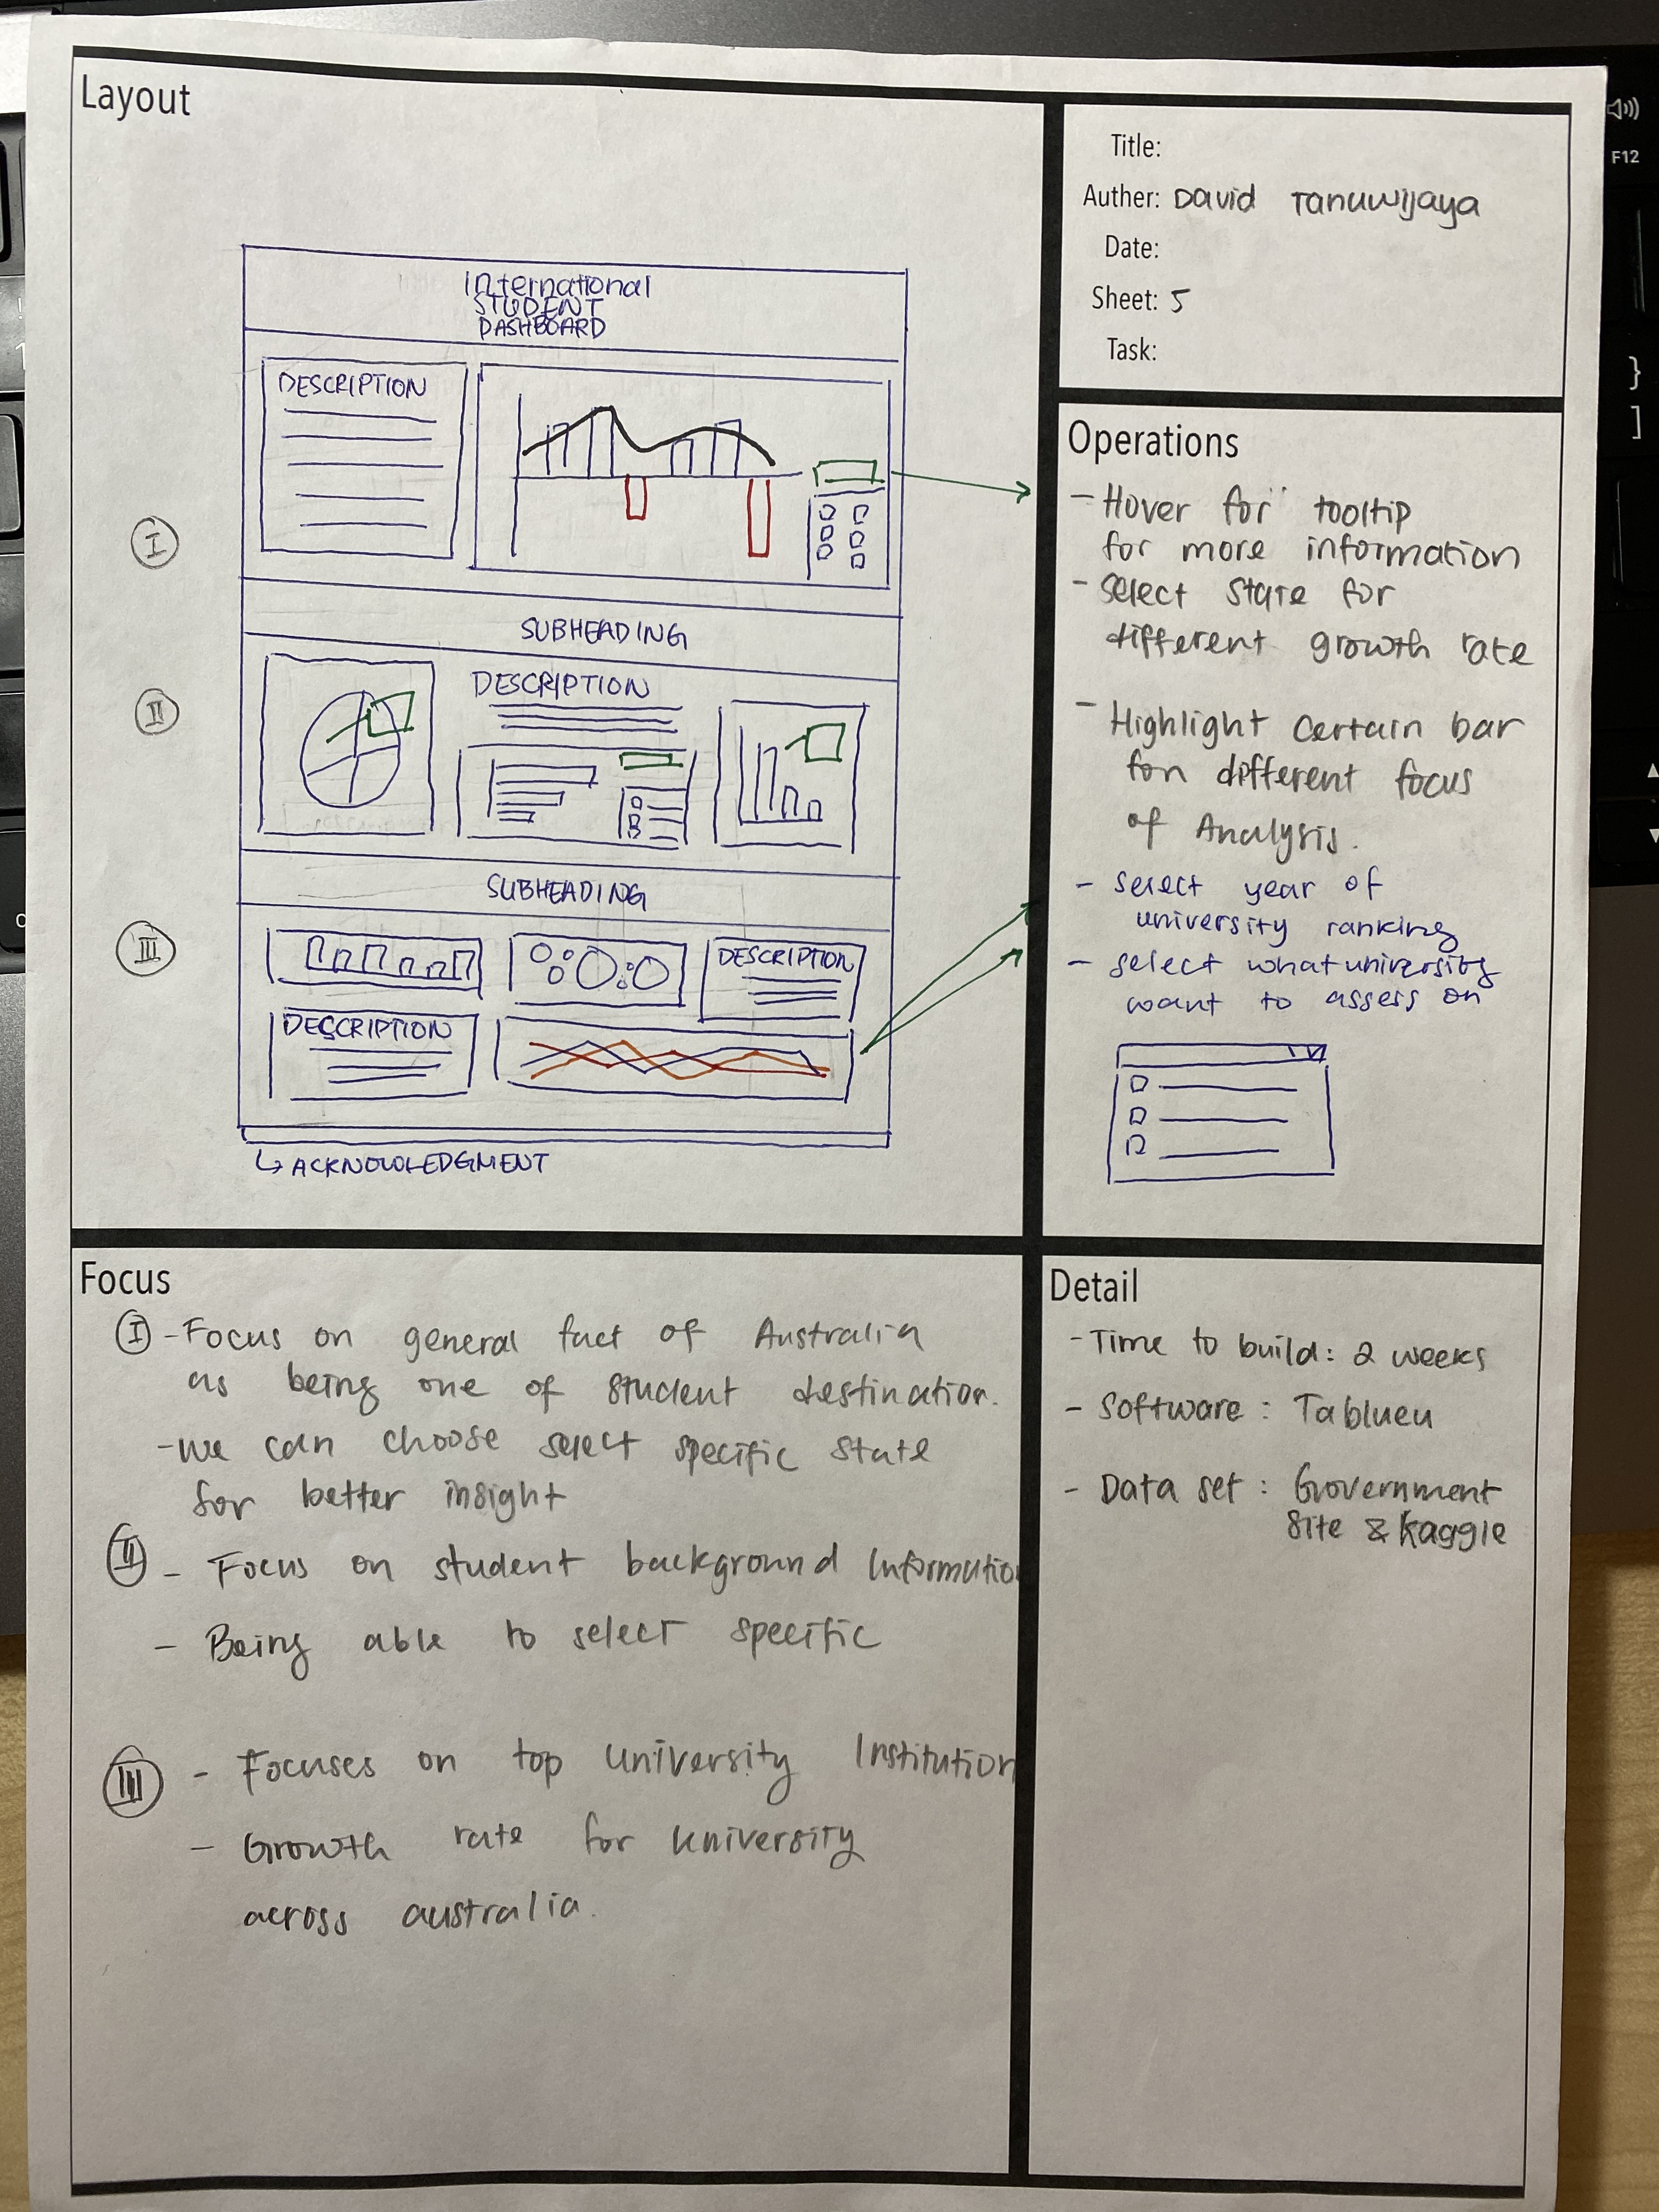 Layout
International
STUDENT
DASHBOARD
DESCRIPTION
I
SUBHEADING
II
DESCRIPTION
SUBHEADING
III
DESCRIPTION
DESCRIPTION
↳ ACKNOWLEDGMENT
Title:
Auther: David Tanuwijaya
Date:
Sheet: 5
Task:
Operations
- Hover for tooltip
for more information
- select State for
different growth rate
- Highlight certain bar
for different focus
of Analysis.
- select year of
university ranking
- select what university
want to assess on
Focus
I - Focus on general fact of Australia
as being one of student destination.
- we can choose select specific state
for better insight
II - Focus on student background Information
- Being able to select specific
III - Focuses on top University Institution
- Growth rate for University
across australia.
Detail
- Time to build: 2 weeks
- Software: Tablueu
- Data set: Government
site & kaggle
F12
}
]